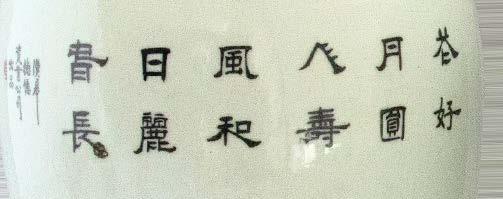 花好
月圓
人壽
風和
日麗
春長